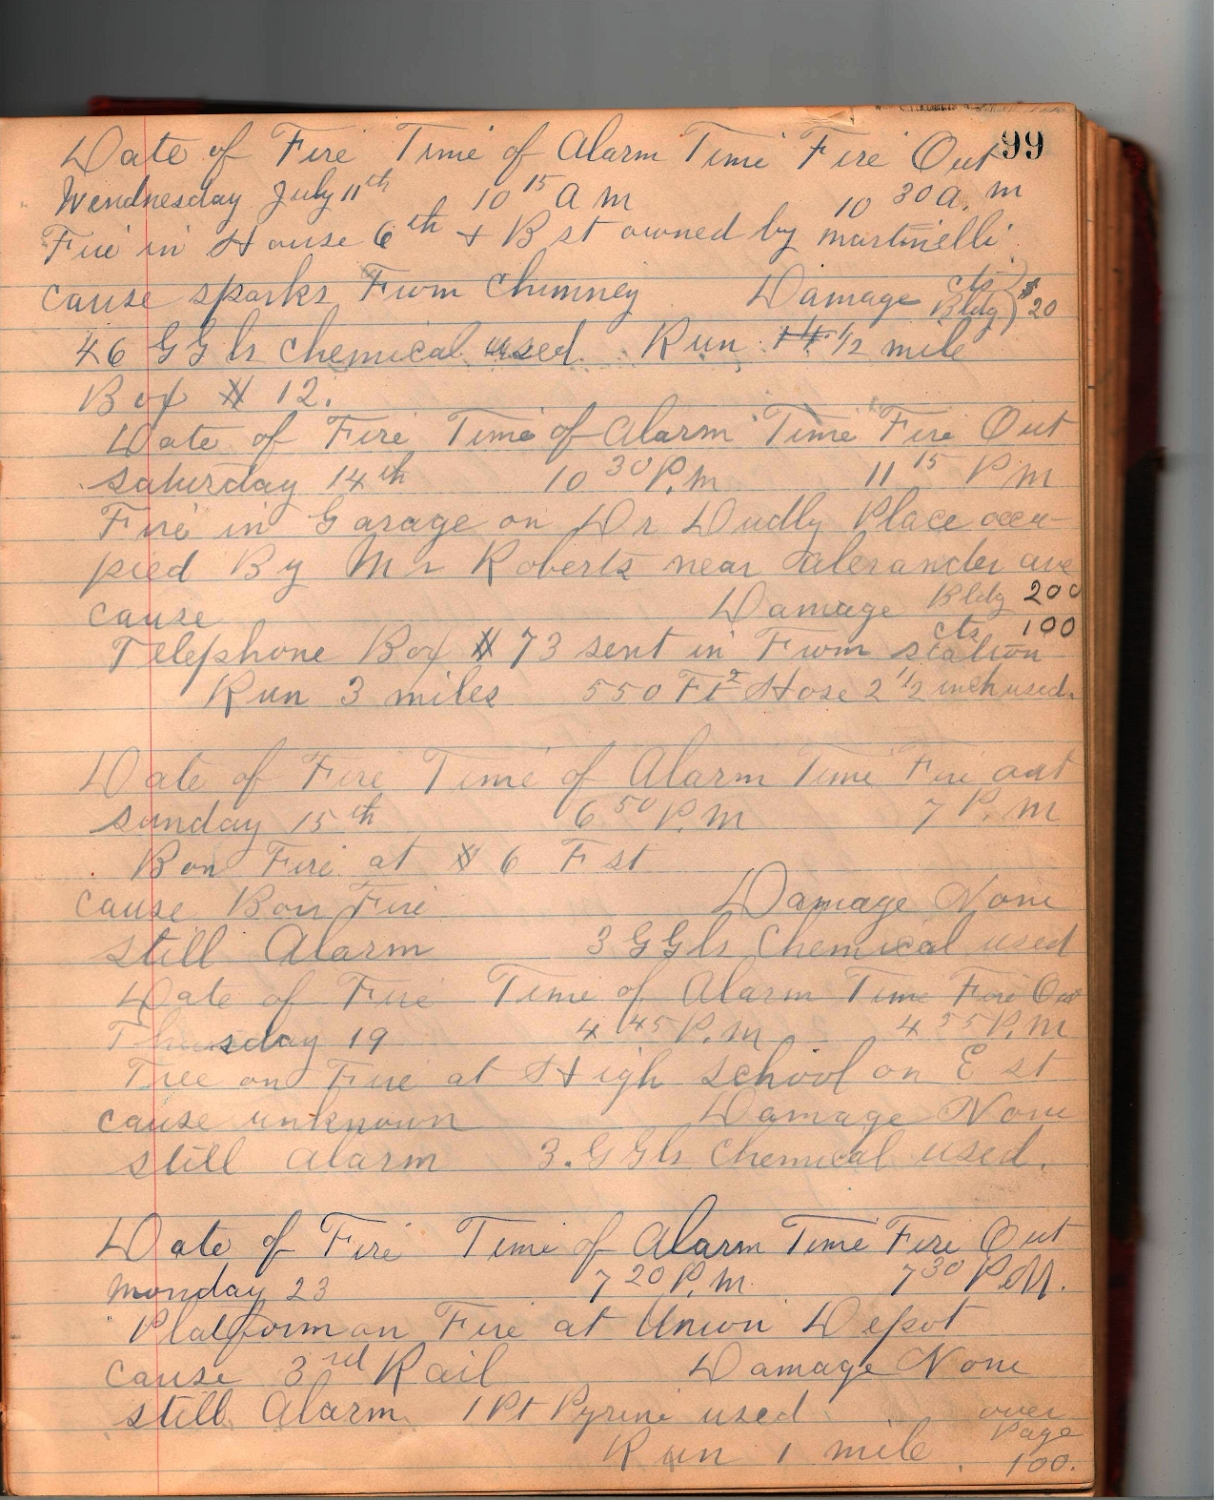 99
Date of Fire Time of Alarm Time Fire Out
Wendnesday July 11th 10 15 A M 10 30 A. M
Fire in House 6th + B st owned by Martinelli
cause sparks From Chimney Damage cts Bldg ) $20
46 GGls Chemical used. Run 1/2 mile
Box # 12.
Date of Fire Time of Alarm Time Fire Out
Saturday 14th 10 30 P.M 11 15 P M
Fire in Garage on Dr Dudly Place occu-
pied By Mr Roberts near Alexander ave
cause Damage Bldg 200
cts 100
Telephone Box # 73 sent in From station
Run 3 miles 550 Ft Hose 2 1/2 inch used.
Date of Fire Time of Alarm Time Fire out
Sunday 15th 6 50 P.M 7 P. M
Bon Fire at # 6 F st
cause Bon Fire Damage None
still Alarm 3 GGls Chemical used
Date of Fire Time of Alarm Time Fire Out
Thursday 19 4 45 P.M. 4 55 P.M
Tree on Fire at High School on E st
cause unknown Damage None
still Alarm 3. GGls Chemical used.
Date of Fire Time of Alarm Time Fire Out
Monday 23 7 20 P.M. 7 30 P.M.
Platform on Fire at Union Depot
cause 3rd Rail Damage None
still Alarm 1 Pt Pyrene used
Run 1 mile over Page 100.